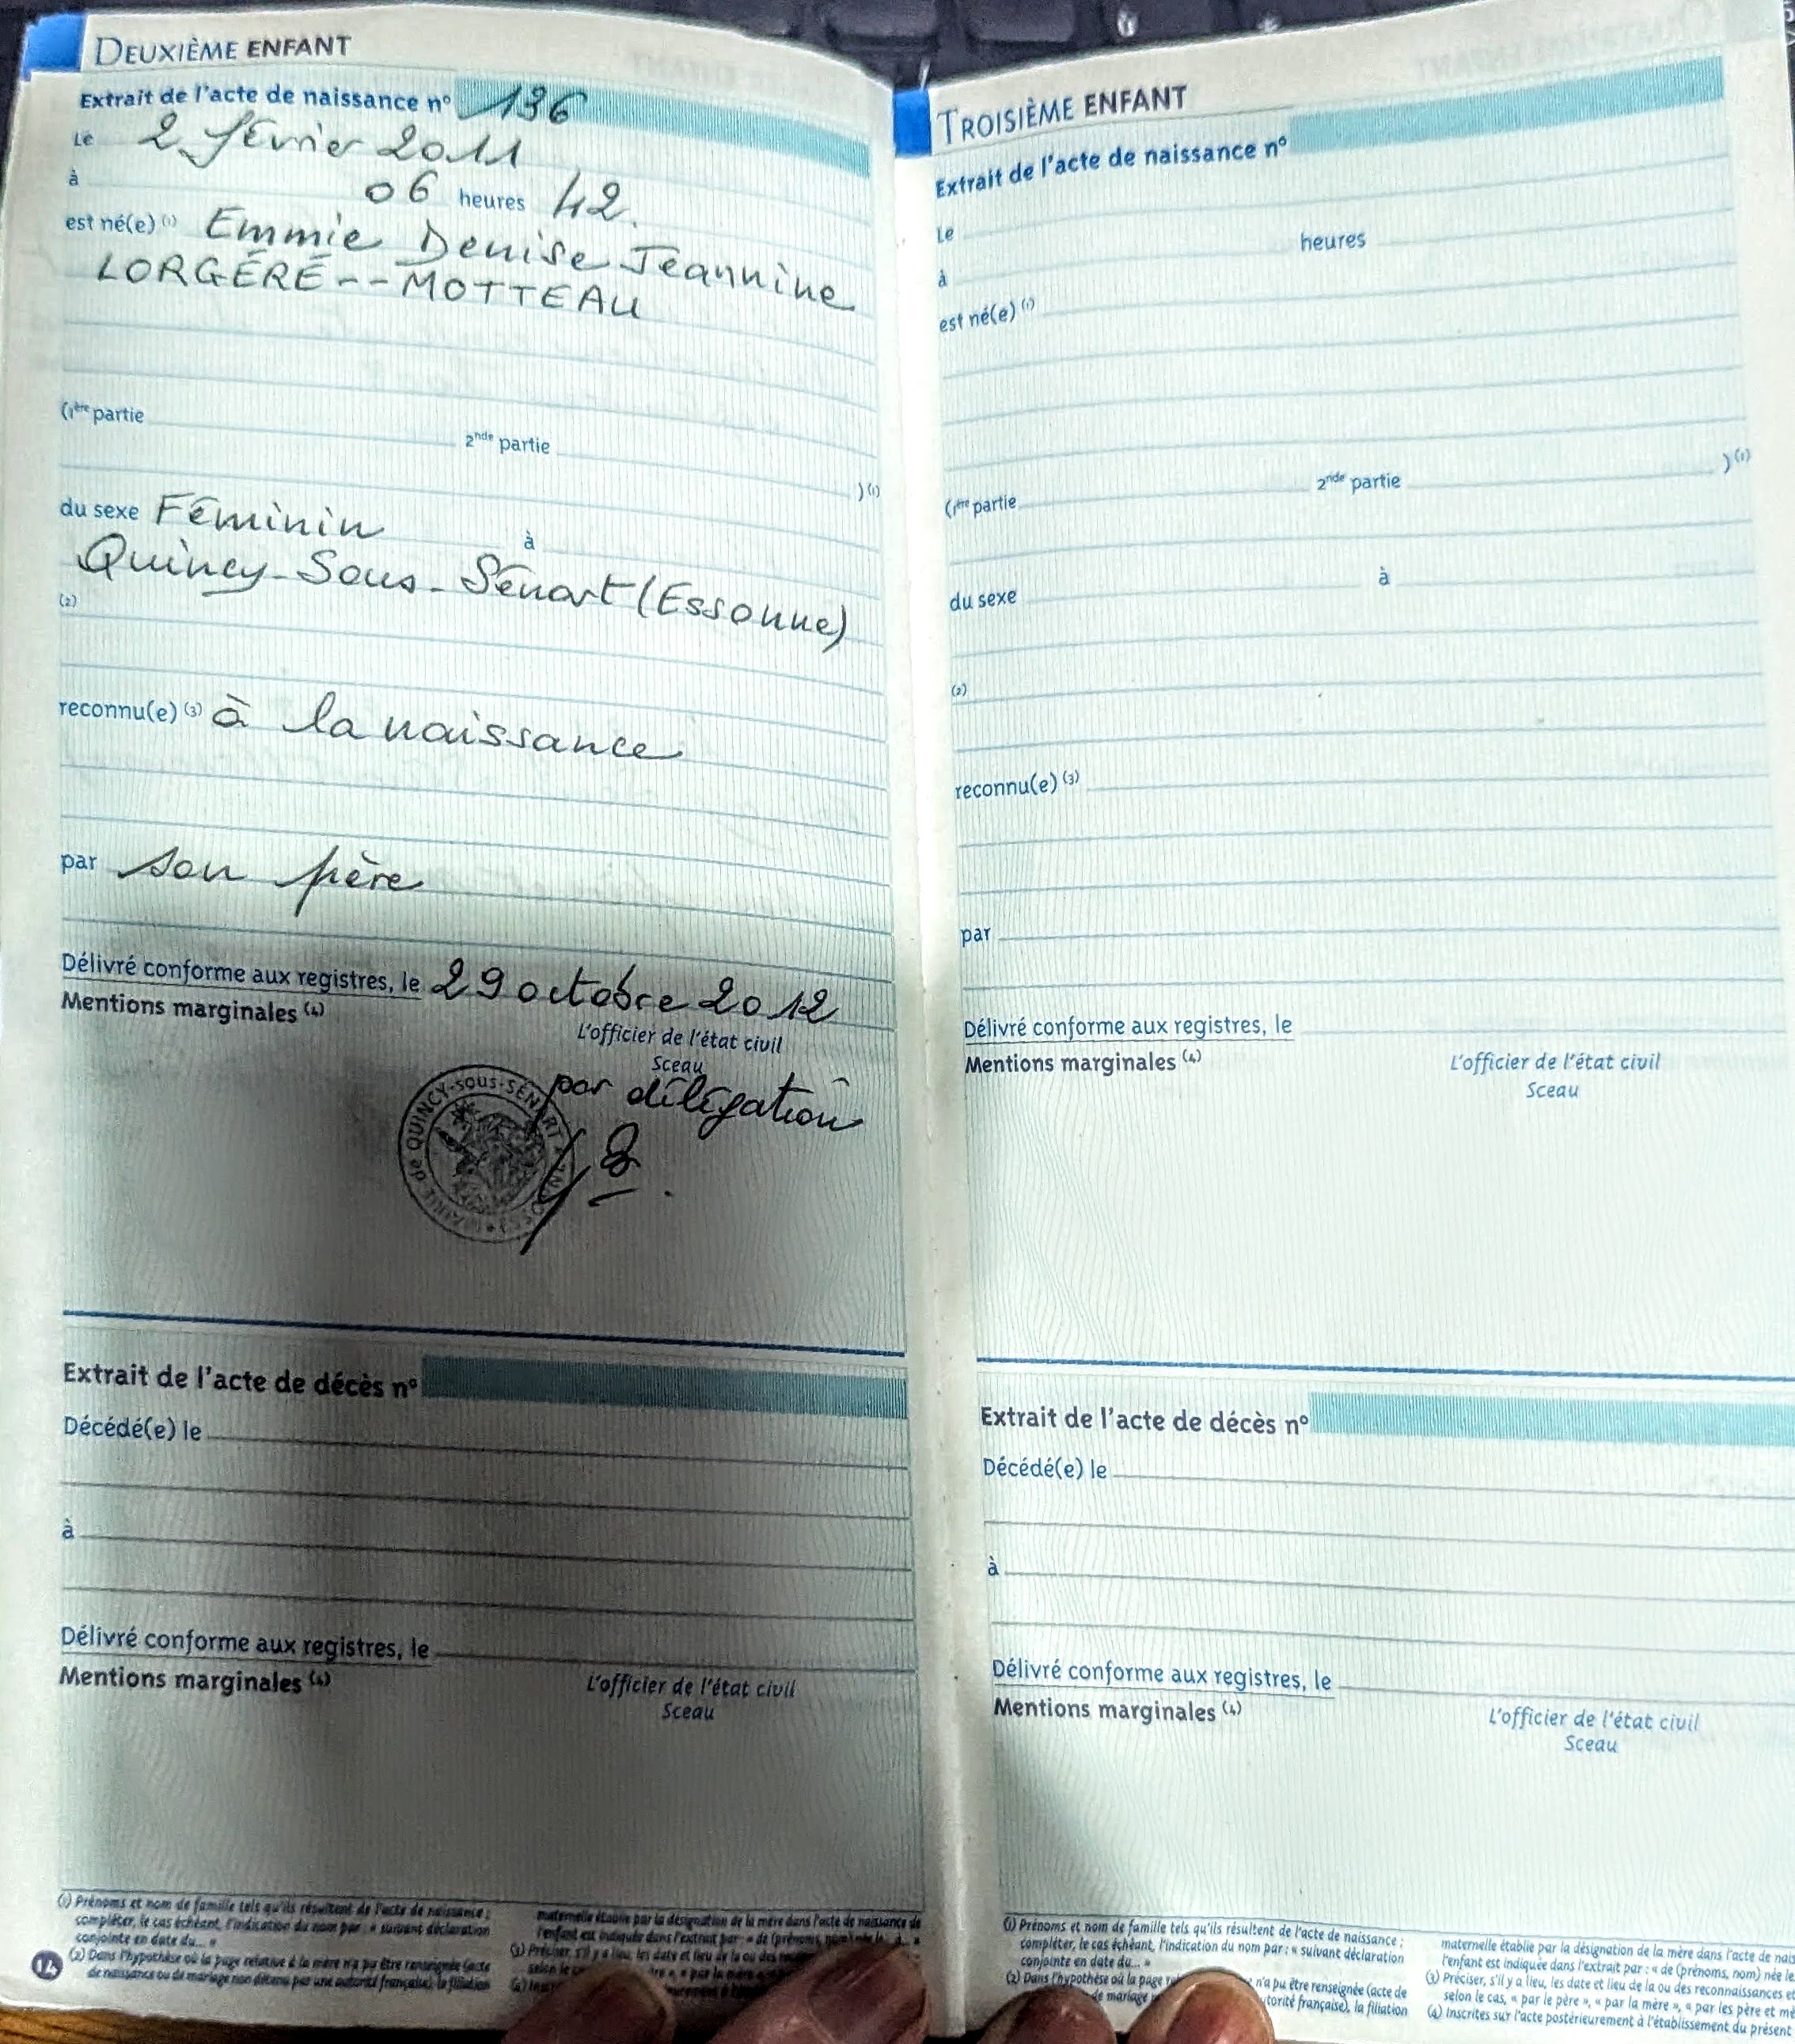 DEUXIÈME ENFANT
Extrait de l'acte de naissance n° 136
Le 2 février 2011
à 06 heures 42.
est né(e) (1) Emmie Denise Jeannine
LORGÉRÉ -- MOTTEAU
(1ère partie 2nde partie
) (1)
du sexe Féminin à
Quincy-Sous-Sénart (Essonne)
(2)
reconnu(e) (3) à la naissance
par son père
Délivré conforme aux registres, le 29 octobre 2012
Mentions marginales (4)
L'officier de l'état civil
Sceau
par délégation
MAIRIE de QUINCY-sous-SÉNART
Extrait de l'acte de décès n°
Décédé(e) le
à
Délivré conforme aux registres, le
Mentions marginales (4)
L'officier de l'état civil
Sceau
(1) Prénoms et nom de famille tels qu'ils résultent de l'acte de naissance ;
compléter, le cas échéant, l'indication du nom par : « suivant déclaration
conjointe en date du... »
(2) Dans l'hypothèse où la page relative à la mère n'a pu être renseignée (acte
de naissance ou de mariage non détenu par une autorité française), la filiation
maternelle établie par la désignation de la mère dans l'acte de naissance de
l'enfant est indiquée dans l'extrait par : « de (prénoms, nom)
(3) Préciser, s'il y a lieu, les date et lieu de la ou des
selon le
14
TROISIÈME ENFANT
Extrait de l'acte de naissance n°
Le
heures
à
est né(e) (1)
(1ère partie 2nde partie ) (1)
du sexe à
(2)
reconnu(e) (3)
par
Délivré conforme aux registres, le
Mentions marginales (4)
L'officier de l'état civil
Sceau
Extrait de l'acte de décès n°
Décédé(e) le
à
Délivré conforme aux registres, le
Mentions marginales (4)
L'officier de l'état civil
Sceau
(1) Prénoms et nom de famille tels qu'ils résultent de l'acte de naissance ;
compléter, le cas échéant, l'indication du nom par : « suivant déclaration
conjointe en date du... »
(2) Dans l'hypothèse où la page n'a pu être renseignée (acte de
de mariage torité française), la filiation
maternelle établie par la désignation de la mère dans l'acte de nais
l'enfant est indiquée dans l'extrait par : « de (prénoms, nom) née le
(3) Préciser, s'il y a lieu, les date et lieu de la ou des reconnaissances et
selon le cas, « par le père », « par la mère », « par les père et mè
(4) Inscrites sur l'acte postérieurement à l'établissement du présent